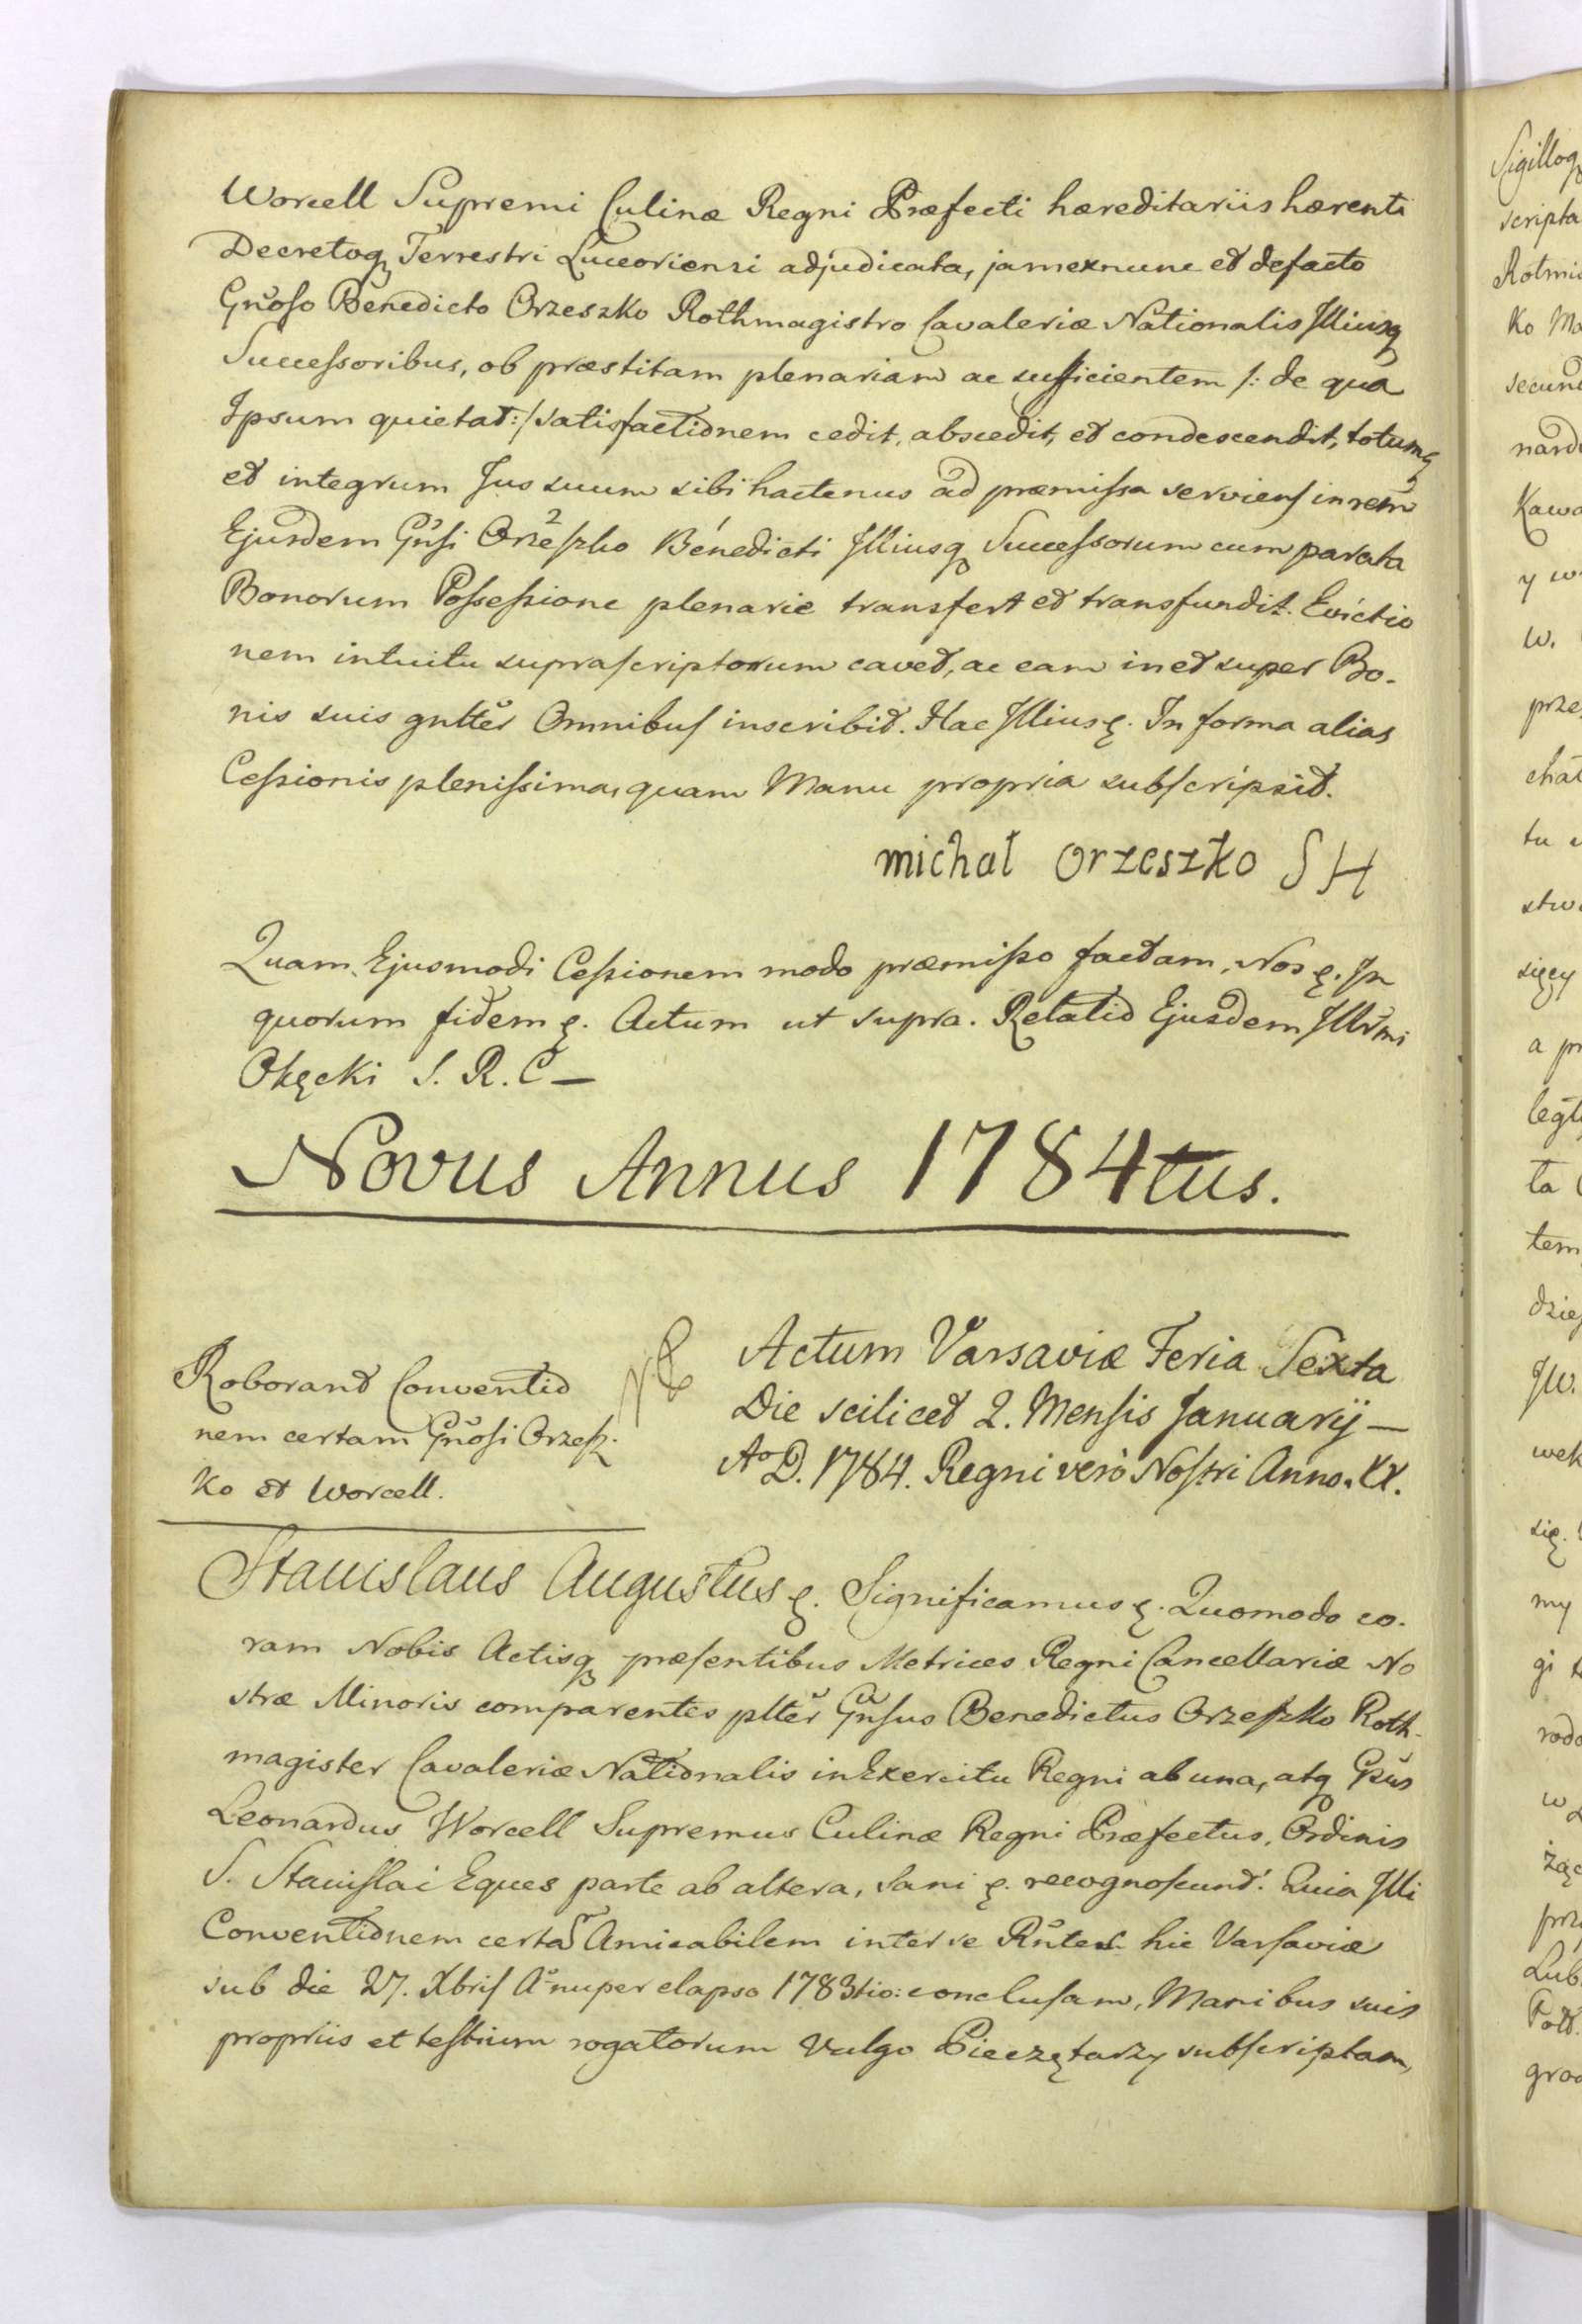 Worcell Supremi Culinæ Regni Præfecti hæreditariis hærenti
Decretoq; Terrestri Luceoriensi adjudicata, jam exnunc et defacto
Gñoso Benedicto Orzeszko Rothmagistro Cavaleriæ Nationalis Illiusq;
Successoribus, ob præstitam plenariam ac sufficientem /: de qua
Ipsum quietat :/ satisfactionem cedit, abscedit, et condescendit, totumq;
et integrum Jus suum sibi hactenus ad præmissa serviens in rem
Ejusdem Gñsi Orzeszko Benedicti Illiusq; Successorum cum parata
Bonorum Possessione plenarie transfert et transfundit. Evictio
nem intuitu suprascriptorum cavet, ac eam in et super Bo-
nis suis gnltěr Omnibus inscribit. Hac Illius ę. In forma alias
Cessionis plenissima, quam Manu propria subscripsit.
michał orzeszko S H
Quam Ejusmodi Cessionem modo præmisso factam, Nos ę. In
quorum fidem ę. Actum ut supra. Relatio Ejusdem Illrmi
Okęcki S. R. C —
Novus Annus 1784tus.
Roborant Conventio
nem certam Gñosi Orzesz-
ko et Worcell.
Actum Varsaviæ Feria Sexta
Die scilicet 2. Mensis Januarij —
Aº D. 1784. Regni verò Nostri Anno. XX.
Stanislaus Augustus ę. Significamus ę. Quomodo co-
ram Nobis Actisq; præsentibus Metrices Regni Cancellariæ No
stræ Minoris comparentes pltěr Gñsus Benedictus Orzeszko Roth-
magister Cavaleriæ Nationalis in Exercitu Regni ab una, atq; Gsus
Leonardus Worcell Supremus Culinæ Regni Præfectus, Ordinis
S. Stanislai Eques parte ab altera, Sani ę. recognoscunt: Quia Illi
Conventionem certam Amicabilem inter se hic Varsaviæ
sub die 27. Xbris Aº nuper elapso 1783tio: conclusam, Manibus suis
propriis et testium rogatorum vulgo Pieczętarzy subscriptam,
Sigilloq;
scripta
Rotmi
ko Ma
secund
nard
Kawa
y w
w.
prze
chał
tu
stwa
sięcy
a pr
legt
ta
tem
dzie
JW.
wek
się.
my
gi
rodo
w
żąc
prz
Lub
Pod.
groc